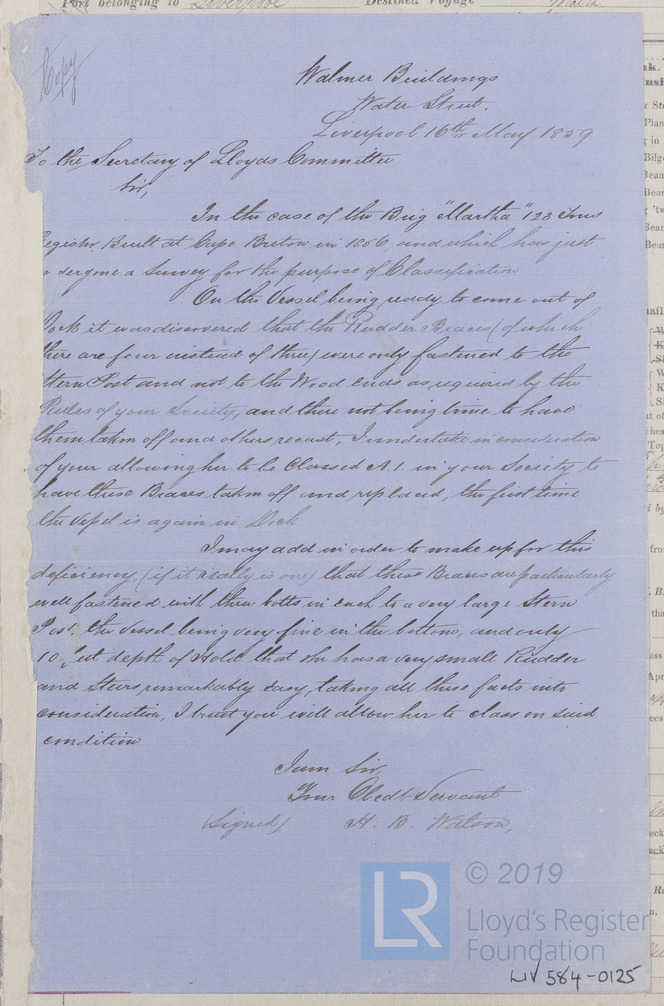 Port belonging to Liverpool Destined Voyage
Copy
Walmer Buildings
Water Street.
Liverpool 16th May 1859
To the Secretary of Lloyds Committee
Sir,
In the case of the Brig "Martha" 123 Tons
Register, Built at Cape Breton in 1856, and which has just
dergone a Survey for the purpose of Classification
On the Vessel being ready to come out of
Dock it was discovered that the Rudder Braces (of which
there are four instead of three) were only fastened to the
Stern Post and not to the Wood ends as required by the
Rules of your Society, and there not being time to have
them taken off and others recast, I undertake in consideration
of your allowing her to be Classed A.1. in your Society to
have these Braces taken off and replaced, the first time
the Vessel is again in Dock
I may add in order to make up for this
deficiency, (if it really is one) that these Braces are particularly
well fastened with three bolts in each to a very large Stern
Post, the Vessel being very fine in the bottom, and only
10 feet depth of Hold that she has a very small Rudder
and Steers remarkably easy, taking all these facts into
consideration, I trust you will allow her to class on said
condition
I am Sir,
Your Obedt Servant
(Signed) H. B. Watson,
LR
© 2019
Lloyd's Register
Foundation
LIV 584-0125